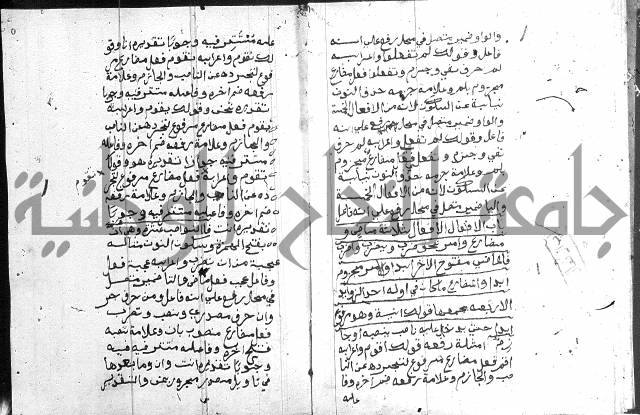 والواو ضمير متصل في محل رفع على انه
فاعل وقولك لم تفعلوا واعرابه
لم حرف نفي وجزم وتفعلوا فعل مضارع
مجزوم بلم وعلامة جزمه حذف النون
نيابة عن السكون لانه من الافعال الخمسة
والواو ضمير متصل في محل رفع على انه
فاعل وقولك لم تفعلي واعرابه لم حرف
نفي وجزم وتفعلي فعل مضارع مجزوم
وعلامة جزمه حذف النون نيابة
عن السكون لانه من الافعال الخمسة
والياء ضمير متصل في محل رفع على انه فاعل
باب الافعال الافعال ثلاثة ماض و
مضارع وامر نحو ضرب ويضرب واضرب
فالماضي مفتوح الاخر ابدا والامر مجزوم
ابدا والمضارع ما كان في اوله احدى الزوايد
الاربعة يجمعها قولك انيت وهو مرفوع
ابدا حتى يدخل عليه ناصب ينصبه او جا
زم امثلة رفعه قولك اقوم واعرابه
اقوم فعل مضارع مرفوع لتجرده عن النا
صب والجازم وعلامة رفعه ضم اخره وفا
عله
عله مستتر فيه وجوبا تقديره انا وقو
لك نقوم واعرابه نقوم فعل مضارع مر
فوع لتجرده عن الناصب والجازم وعلامة
رفعه ضم اخره وفاعله مستتر فيه وجوبا
تقديره نحن وقولك يقوم واعرابه
يقوم فعل مضارع مرفوع لتجرده عن الناصب
والجازم وعلامة رفعه ضم اخره وفاعله
مستتر فيه جوازا تقديره هو وقولك
تقوم واعرابه فعل مضارع مرفوع لتجر
ده عن الناصب والجازم وعلامة رفعه
ضم اخره وفاعله مستتر فيه وجوبا
تقديره انت فالنواصب عشرة وهي ان
بفتح الهمزة وسكون النون مثاله
عجبت من ان تضرب واعرابه عجب فعل
وفاعل عجب فعل ماض والتا ضمير متصل
في محل رفع على انه فاعل ومن حرف جر
وان حرف مصدري ونصب وتضرب
فعل مضارع منصوب بان وعلامة نصبه
فتح اخره وفاعله مستتر فيه
وجوبا تقديره انت وان وما بعدها
في تاويل مصدر مجرور بمن والتقدير
تقوم
جامعة النجاح الوطنية